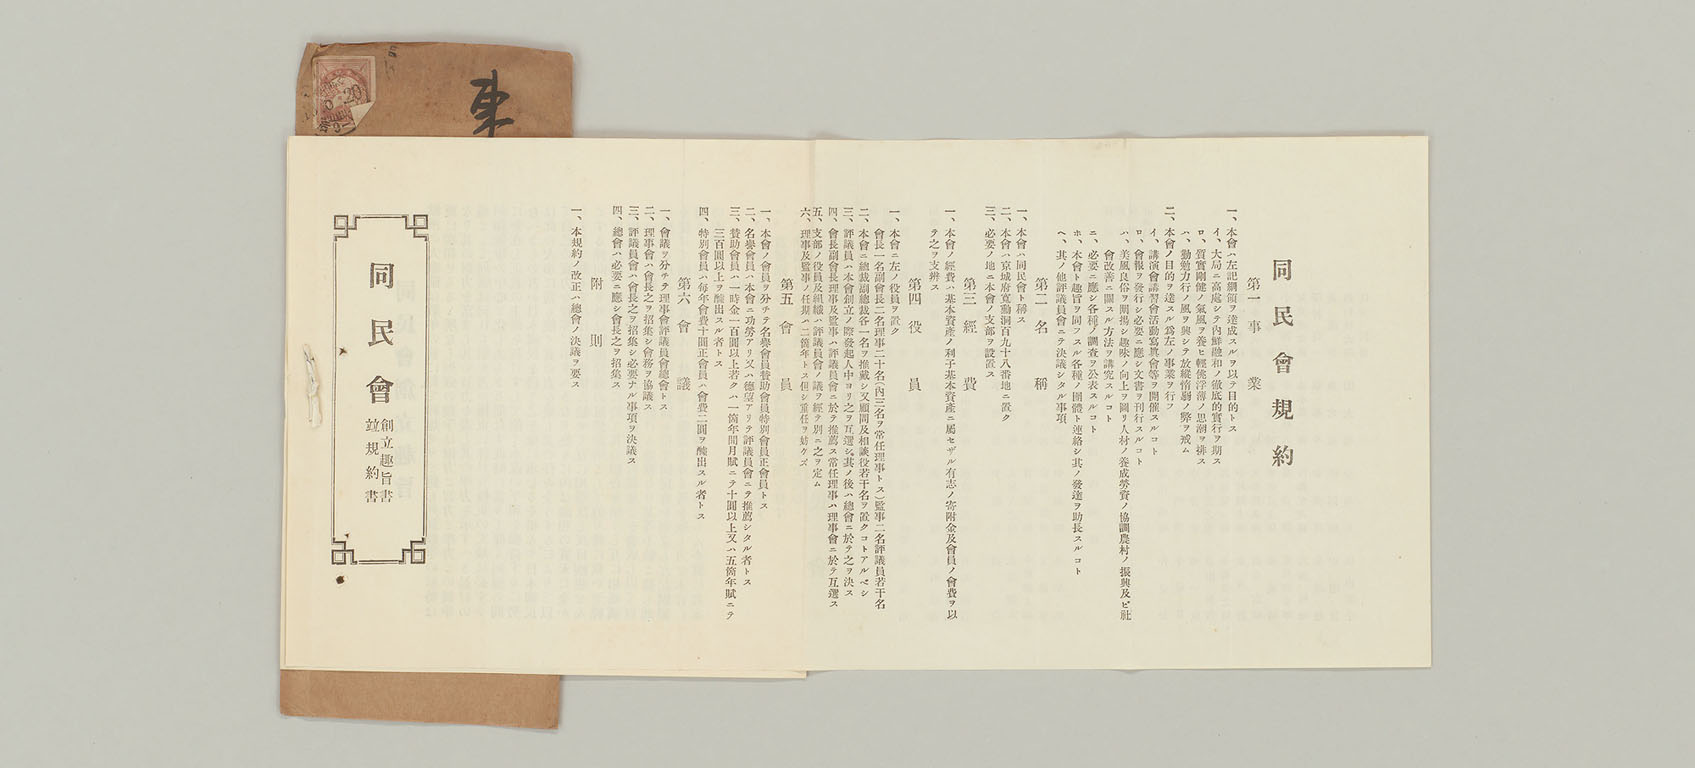 東
同民會規約
第一 事業
一、本會ハ左記綱領ヲ達成スルヲ以テ目的トス
イ、大局ニ高處シテ內鮮融和ノ徹底的實行ヲ期ス
ロ、質實剛健ノ氣風ヲ養ヒ輕佻浮薄ノ思潮ヲ排ス
ハ、勤勉力行ノ風ヲ興シテ放縱惰弱ノ弊ヲ戒ム
二、本會ノ目的ヲ達スル爲左ノ事業ヲ行フ
イ、講演會講習會活動寫眞會等ヲ開催スルコト
ロ、會報ヲ發行シ必要ニ應シ文書ヲ刊行スルコト
ハ、美風良俗ヲ闡揚シ趣味ノ向上ヲ圖リ人材ノ養成勞資ノ協調農村ノ振興及ビ社
會改善ニ關スル方法ヲ講究スルコト
ニ、必要ニ應シ各種ノ調查ヲ公表スルコト
ホ、本會ト趣旨ヲ同フスル各種ノ團體ト連絡シ其ノ發達ヲ助長スルコト
ヘ、其ノ他評議員會ニテ決議シタル事項
第二 名稱
一、本會ハ同民會ト稱ス
二、本會ハ京城府寬勳洞百九十八番地ニ置ク
三、必要ノ地ニ本會ノ支部ヲ設置ス
第三 經費
一、本會ノ經費ハ基本資產ノ利子基本資產ニ屬セザル有志ノ寄附金及會員ノ會費ヲ以
テ之ヲ支辨ス
第四 役員
一、本會ニ左ノ役員ヲ置ク
會長一名副會長二名理事二十名(內三名ヲ常任理事トス)監事二名評議員若干名
二、本會ニ總裁副總裁各一名ヲ推戴シ又顧問及相談役若干名ヲ置クコトアルベシ
三、評議員ハ本會創立ノ際發起人中ヨリ之ヲ互選シ其ノ後ハ總會ニ於テ之ヲ決ス
四、會長副會長理事及監事ハ評議員會ニ於テ推薦ス常任理事ハ理事會ニ於テ互選ス
五、支部ノ役員及組織ハ評議員會ノ議ヲ經テ別ニ之ヲ定ム
六、理事及監事ノ任期ハ二箇年トス但シ重任ヲ妨ケズ
第五 會員
一、本會ノ會員ヲ分チテ名譽會員贊助會員特別會員正會員トス
二、名譽會員ハ本會ニ功勞アリ又ハ德望アリテ評議員會ニテ推薦シタル者トス
三、贊助會員ハ一時金一百圓以上若クハ一箇年間月賦ニテ十圓以上又ハ五箇年賦ニテ
三百圓以上ヲ醵出スル者トス
四、特別會員ハ每年會費十圓正會員ハ會費二圓ヲ醵出スル者トス
第六 會議
一、會議ヲ分チテ理事會評議員會總會トス
二、理事會ハ會長之ヲ招集シ會務ヲ協議ス
三、評議員會ハ會長之ヲ招集シ必要ナル事項ヲ決議ス
四、總會ハ必要ニ應シ會長之ヲ招集ス
附則
一、本規約ノ改正ハ總會ノ決議ヲ要ス
同民會
創立趣旨書
竝規約書